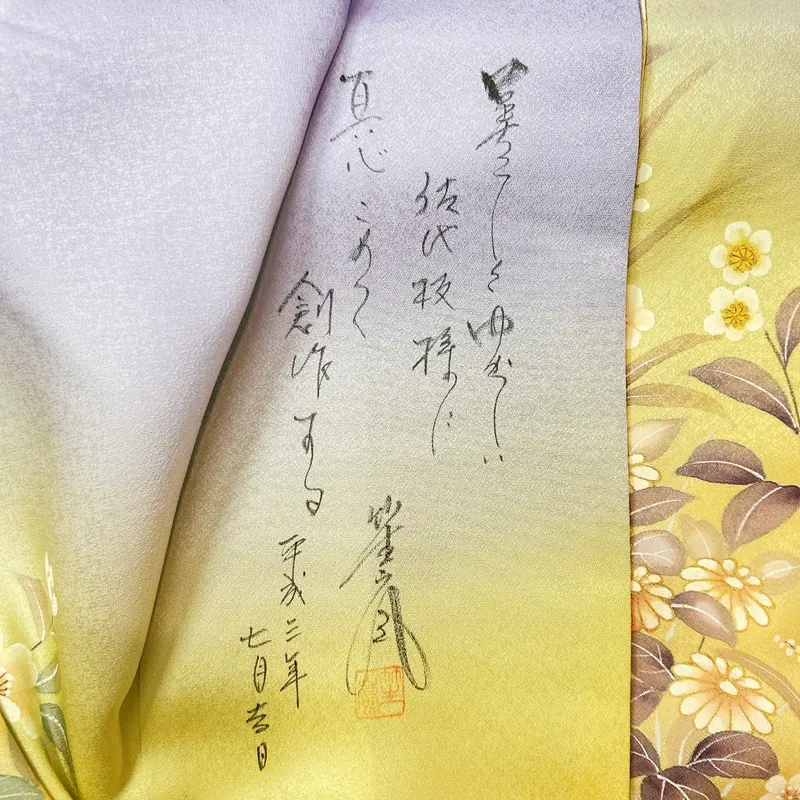 美しくゆかしい
佐代枝様に
真心こめて
創作する
平成三年
七月吉日